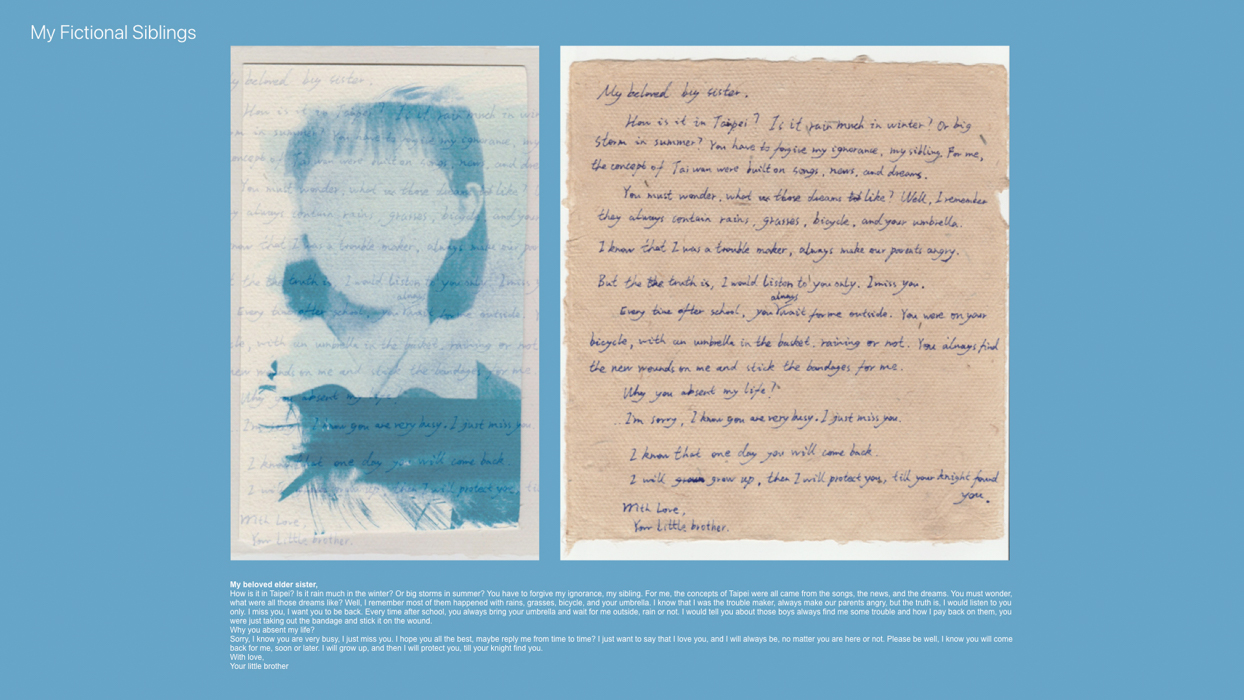 My Fictional Siblings
y beloved big sister.
How is it in Taipei? Is it rain much in win
m in summer? You have to forgive my ignorance, my
concept of Taiwan were built on songs, news, and dre
You must wonder, what those dreams like?
y always contain rains, grasses, bicycle, and your
now that I was a trouble maker, always make our pa
t the the truth is, I would listen to you only. I miss y
always
Every time after school, you wait for me outside. Y
le, with an umbrella in the basket, raining or not.
new wounds on me and stick the bandages for me.
Why you absent my life?
I'm sorry, I know you are very busy. I just miss you.
I know that one day you will come back.
I will grow up, then I will protect you, til
With Love,
Your Little brother.
My beloved big sister.
How is it in Taipei? Is it rain much in winter? Or big
storm in summer? You have to forgive my ignorance, my sibling. For me,
the concept of Taiwan were built on songs, news, and dreams.
You must wonder, what those dreams like? Well, I remember
they always contain rains, grasses, bicycle, and your umbrella.
I know that I was a trouble maker, always make our parents angry.
But the the truth is, I would listen to you only. I miss you.
always
Every time after school, you wait for me outside. You were on your
bicycle, with an umbrella in the basket, raining or not. You always find
the new wounds on me and stick the bandages for me.
Why you absent my life?
I'm sorry, I know you are very busy. I just miss you.
I know that one day you will come back.
I will grow up, then I will protect you, till your knight found
you.
With Love,
Your Little brother.
My beloved elder sister,
How is it in Taipei? Is it rain much in the winter? Or big storms in summer? You have to forgive my ignorance, my sibling. For me, the concepts of Taipei were all came from the songs, the news, and the dreams. You must wonder,
what were all those dreams like? Well, I remember most of them happened with rains, grasses, bicycle, and your umbrella. I know that I was the trouble maker, always make our parents angry, but the truth is, I would listen to you
only. I miss you, I want you to be back. Every time after school, you always bring your umbrella and wait for me outside, rain or not. I would tell you about those boys always find me some trouble and how I pay back on them, you
were just taking out the bandage and stick it on the wound.
Why you absent my life?
Sorry, I know you are very busy, I just miss you. I hope you all the best, maybe reply me from time to time? I just want to say that I love you, and I will always be, no matter you are here or not. Please be well, I know you will come
back for me, soon or later. I will grow up, and then I will protect you, till your knight find you.
With love,
Your little brother